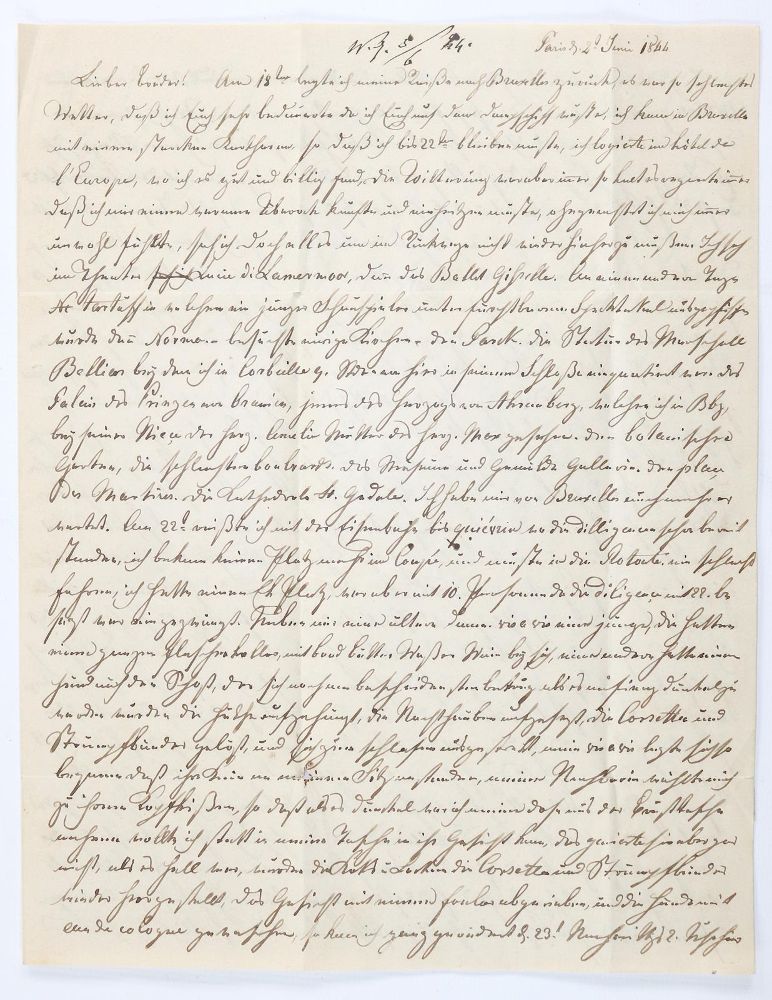 Paris d. 2t Juni 1844
Lieber Bruder! Am 18ten legte ich meine Reise nach Bruxelles zurück, es war so schlechtes
Wetter, daß ich Euch sehr bedauerte da ich Euch auf dem Dampfschiff wußte, ich kam in Bruxelles
mit einem starken Katharr an, so daß ich bis 22ten bleiben mußte, ich logierte im hôtel de
l'Europe, wo ich es gut und billig fand, die Witterung war aber immer so kalt
daß ich mir einen warmen Überrock kaufte und einheitzen mußte, ohngeachtet ich mich immer
unwohl fühlte, sah ich doch alles um im Rückwege nicht wieder hinher zu müßen. Ich sah
im Theater Lucia di Lamermoor, dann das Ballet Giselle. An einem andern Tage
Tartuff in welchem ein junger Schauspieler unter furchtbarem Specktakel ausgepfiffen
wurde dann Norma - besuchte einige Kirchen - den Park. die Statue des Marschall
Belliard bey dem ich in Corbeille in seinem Schloße einquartiert war. das
Palais des Prinzen von Oranien, jenes des Herzogs von Ahremberg, welchen ich in Bbg,
bey seiner Niece der Herz. Amelie Mutter des Herz. Max gesehen. den botanischen
Garten, die schönsten boulevards. das Museum und Gemälde Gallerie. den place
des Martires. die Cathedrale St. Gudule. Ich habe mir von Bruxelles auch mehr er
wartet. Am 22t reißte ich mit der Eisenbahn bis quiévrin wo die Diligencen schon bereit
standen, ich bekam keinen Platz mehr im Coupé, und mußte in der Rotonde
fahren, ich hatte einen Eck Platz, war aber mit 10. Personen da die Diligence mit 22. be
setzt war eingezwängt. Neben mir eine ältere Dame. vis a vis eine junge, die hatten
einen ganzen Flaschenkeller, mit Wasser Wein bey sich, eine andere hatte einen
Hund auf dem Schoß, der sich noch am bescheidensten betrug als es anfing dunkel zu
werden wurden die Hüthe aufgehängt, die Nachthauben aufgesetzt, die Corsetten und
Strumpfbänder gelößt, und sich zum schlafen ausgestreckt, meine vis a vis legte sich so
bequem daß ihre Knie an meinem Sitz anstanden, meine Nachbarin wählte mich
zu ihrem Kopfkißen, so daß als es dunkel war ich meine Dose aus der Brusttasche
nehmen wollte ich statt in meine Tasche in ihr Gesicht kam, das genirte sie aber gar
nicht, als es hell war, wurden die Locken die Corsetten und Strumpfbänder
wieder hergestellt, das Gesicht mit einem foular abgerieben, und die Hände mit
eau de cologne gewaschen, so kam ich ganz gerädert d. 23t Nachmittags 2.